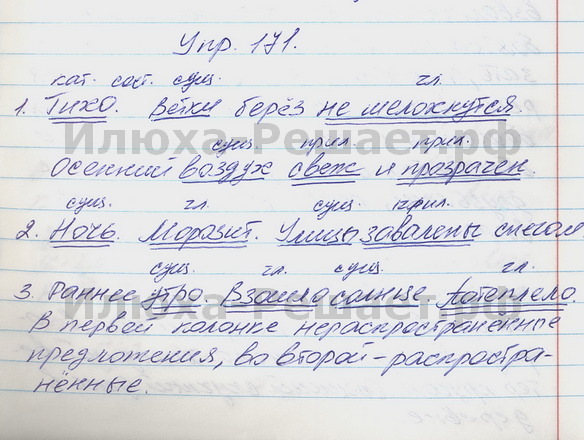 Упр. 171.
кат. сост. сущ. гл.
1. Тихо. Ветки берёз не шелохнутся.
Илюха-Решает.рф
сущ. прил. прил.
Осенний воздух свеж и прозрачен.
сущ. гл. сущ. прил.
2. Ночь. Морозит. Улицы завалены снегом
сущ. гл. сущ. гл.
3. Раннее утро. Взошло солнце. Потеплело.
Илюха-Решает.рф
В первой колонке нераспространённые
предложения, во второй – распростра-
нённые.